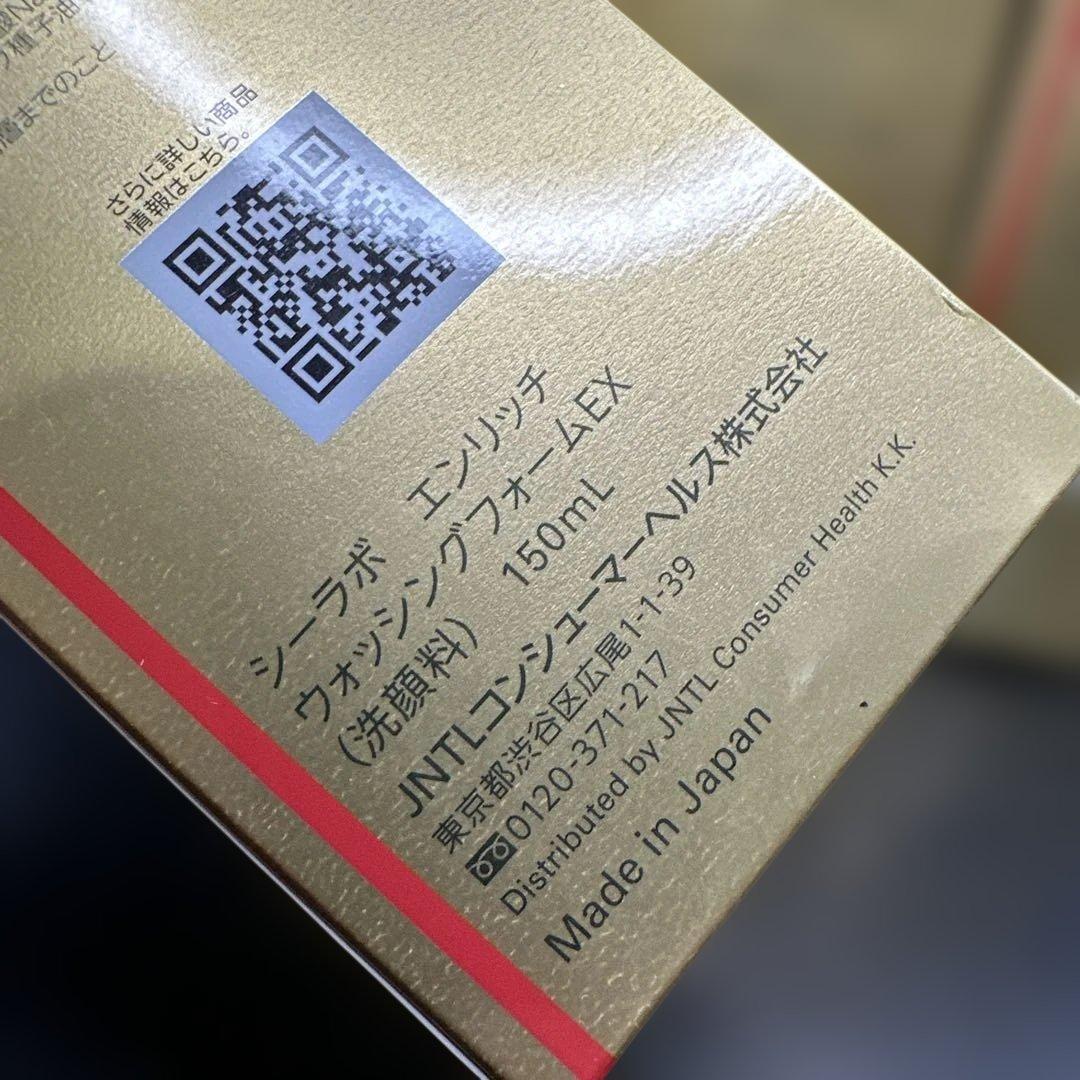 までのこと
さらに詳しい商品
情報はこちら。
シーラボ エンリッチ
ウォッシングフォームEX
(洗顔料) 150mL
JNTLコンシューマーヘルス株式会社
東京都渋谷区広尾1-1-39
0120-371-217
Distributed by JNTL Consumer Health K.K.
Made in Japan